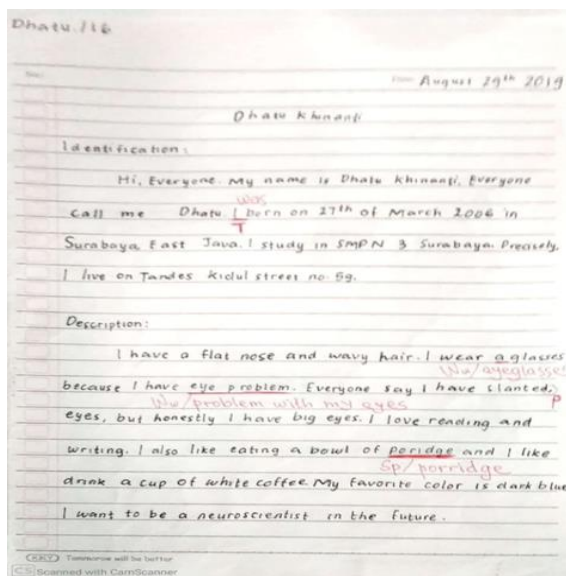 Dhatu /16
August 29th 2019
Dhatu Khinanti
Identification:
Hi, Everyone. My name is Dhatu Khinanti, Everyone
was
call me Dhatu. I born on 27th of March 2006 in
T
Surabaya East Java. I study in SMPN 3 Surabaya. Precisely,
I live on Tandes kidul street no. 59.
Description:
I have a flat nose and wavy hair. I wear a glasses
Ww/eyeglasses
because I have eye problem. Everyone say I have slanted,
Ww/problem with my eyes P
eyes, but honestly I have big eyes. I love reading and
writing. I also like eating a bowl of poridge and I like
Sp/porridge
drink a cup of white coffee My favorite color is dark blue
I want to be a neuroscientist in the future.
KIKY Tommorow will be better
CS Scanned with CamScanner